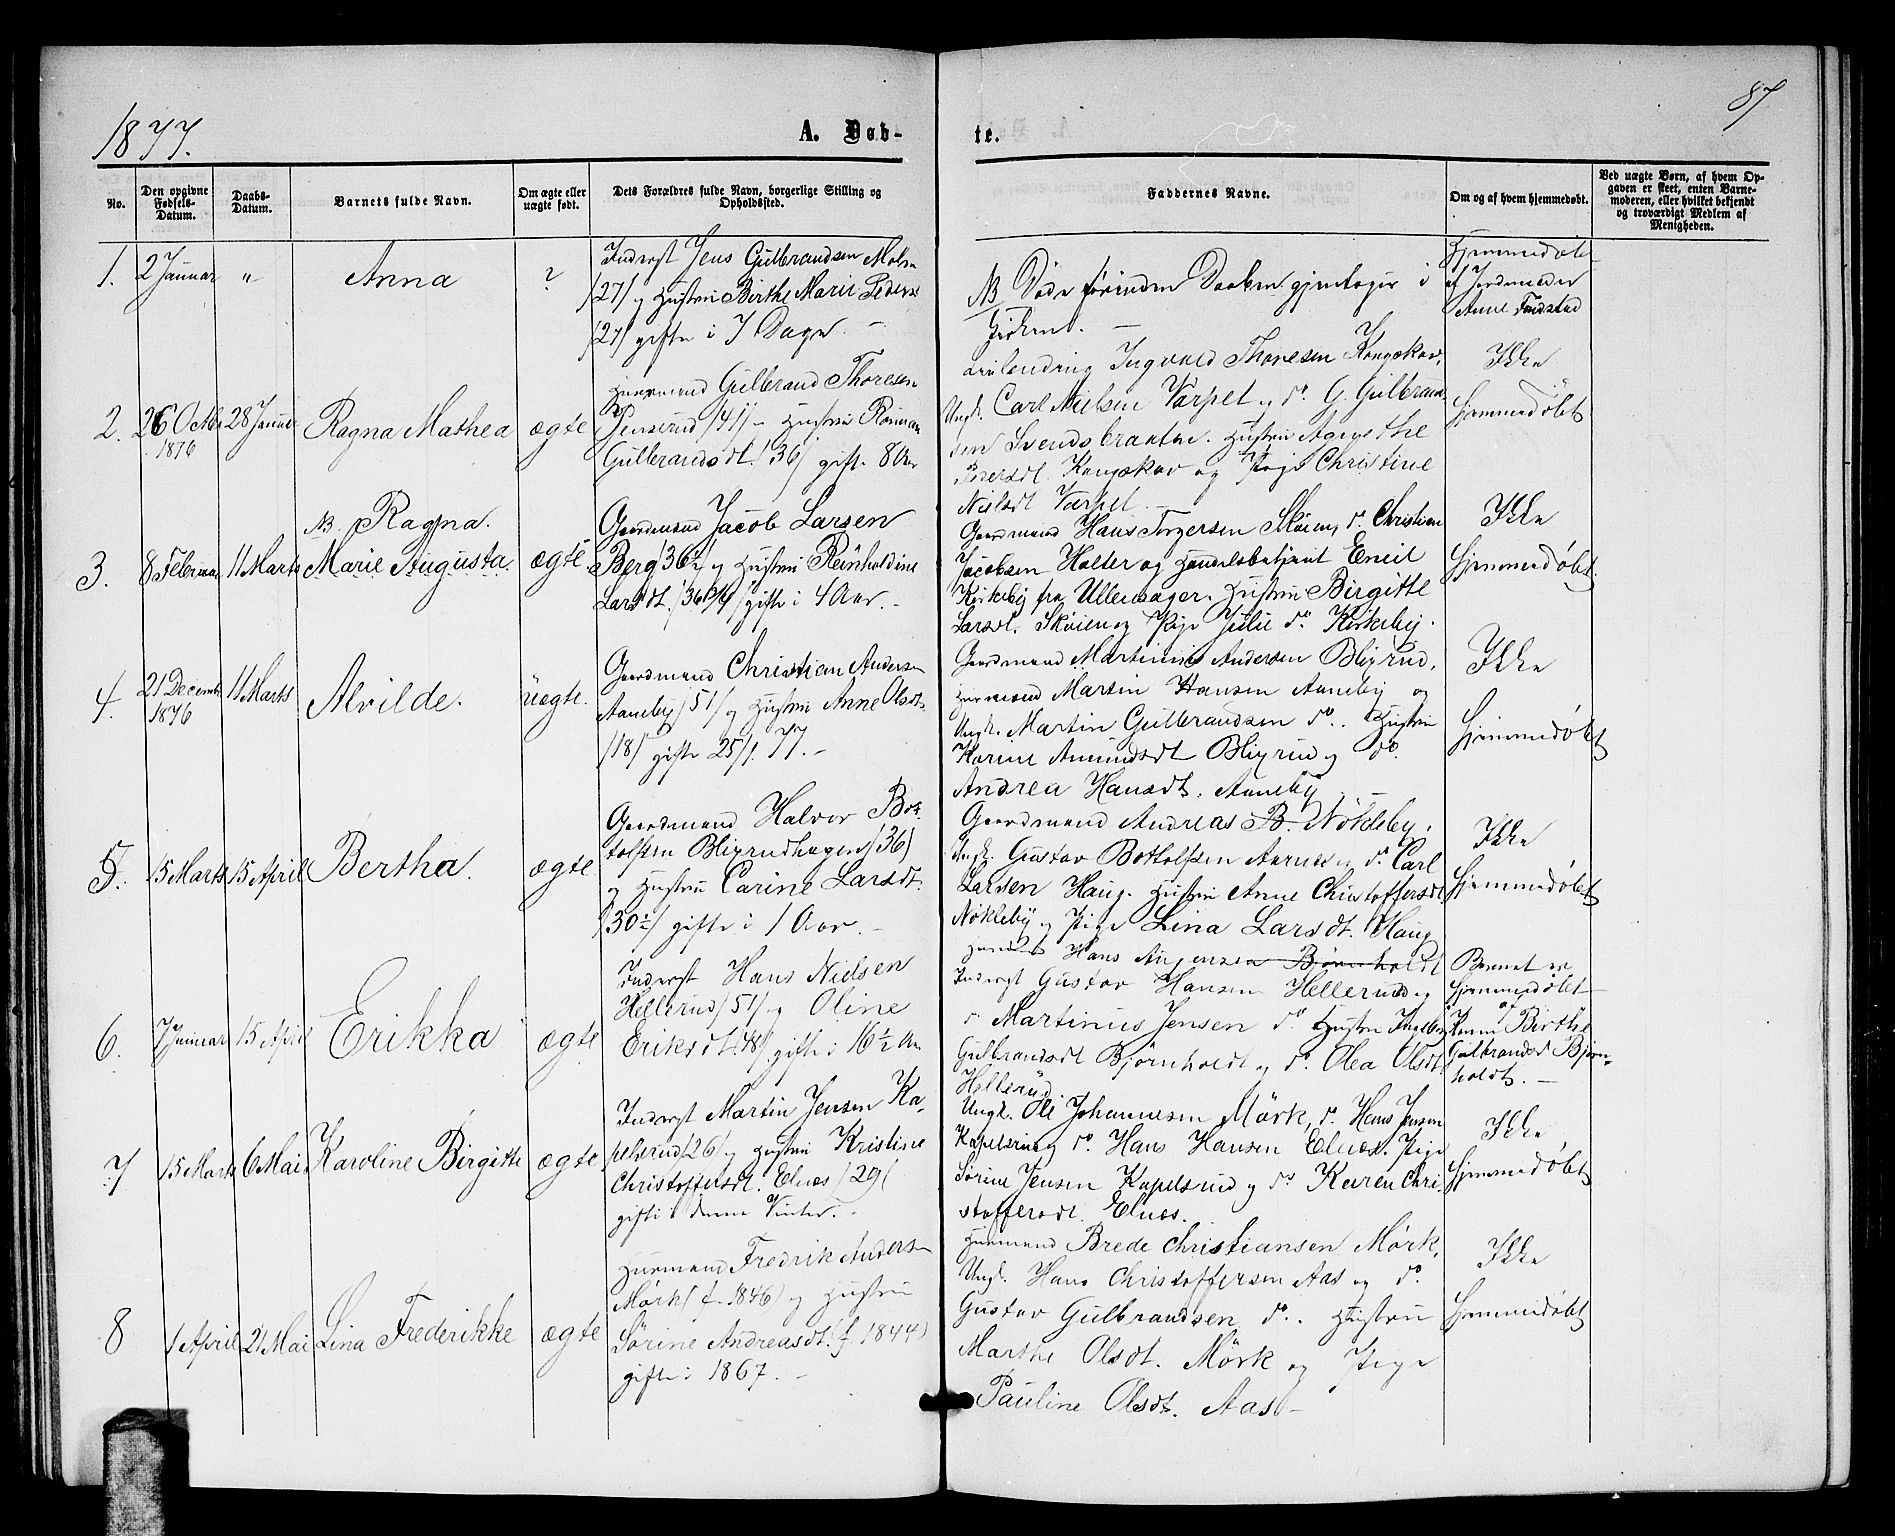 1877.
A. Døb-
te.
87
No.
Den opgivne Fødsels-Datum.
Daabs-Datum.
Barnets fulde Navn.
Om ægte eller uægte født.
Dets Forældres fulde Navn, borgerlige Stilling og Opholdssted.
Faddernes Navne.
Om og af hvem hjemmedøbt.
Ved uægte Børn, af hvem Opgaven er skeet, enten Barnemoderen, eller hvilket bekjendt og troværdigt Medlem af Menigheden.
1. 2 Januar " Anna ?
Inderst Jens Gulbrandsen
/27/ og Hustru Birthe Marie Peders
/27/ gifte i 7 Dage. -
NB Døde førinden Daaben gjentoges i
Kirken. -
Hjemmedøbt
af Jordmoder
Anne
2. 26 Octbr 1876 28 Januar Ragna Mathea ægte
Huusmand Gulbrand Thoresen
Jenserud /41/ - Hustru
Gulbrandsdt. /36/ gift 8 Aar
Ingvald Thoresen Kongskov,
Ungk. Carl Nielsen Varpet og do G. Gulbrand-
sen Svendsbraathe. Hustru Agnethe
Kongskov og Pige Christine
Nielsdt Varpet. -
Ikke
hjemmedøbt
3. 8 Februar 11 Marts NB. Ragna.
Marie Augusta. ægte
Gaardmand Jacob Larsen
Berg /36½/ og Hustru Reinholdine
Larsdt. /36 / gifte i 4 Aar. -
Gaardmand Hans Torgersen Skøien, do Christian
Jacobsen Holter og Handelsbetjent Emil
Kirkeby fra Ullensager. Hustru Birgitte
Larsdt. Skøien og Pige Julie do Kirkeby.
Ikke
hjemmedøbt.
4. 21 Decemb 1876 11 Marts Alvilde. uægte.
Gaardmand Christian Andersen
Aaneby /51/ og Hustru Anne Olsdt.
/18/ gifte 25/1. 77. -
Gaardmand Martinus Andersen Bligrud,
Huusmand Martin Hansen Aaneby og
Ungk. Martin Gulbrandsen do. Hustru
Karine Amundsdt Bligrud og do
Andrea Hansdt. Aaneby. -
Ikke
hjemmedøbt
5. 15 Marts 15 April Bertha. ægte
Gaardmand Halvor Bot-
tolfsen Bligrudhagen /36/
og Hustru Carine Larsdt.
/30½/ gifte i 1 Aar. -
Gaardmand Andreas B. Nökleby,
Ungk. Gustav Bottolfsen Aarnes og do Carl
Larsen Haug. Hustru Anne Christoffersdt
Nökleby og Pige Lina Larsdt. Haug
Ikke
hjemmedøbt
6. 7 Januar 15 April Erikka ægte
Inderst Hans Nielsen
Hellerud /51/ og Oline
Eriksdt. /48/ gifte i 16½ Aar
Hans Bjørnholdt
Inderst Gustav Hansen Hellerud og
do Martinus Jensen do Hustru Ingeborg
Gulbrandsdt Bjørnholdt og do Olea Olsdt
Hellerud.
Barnet er
hjemmedøbt
af
Kone Birthe
Gulbrandsd Bjørn-
holdt. -
7 15 Marts 6 Mai Karoline Birgitte ægte
Inderst Martin Jensen Ka-
pelsrud /26/ og Hustru Kristine
Christoffersdt. Elnæs /29/
gifte i denne Vinter. -
Ungk. Ole Johannesen Mörk, do Hans Jensen
Kapelsrud og do Hans Hansen Elnæs. Pige
Sørine Jensen Kapelsrud og do Karen Chri-
stoffersdt. Elnæs.
Ikke
hjemmedøbt
8 1 April 21 Mai Lina Frederikke ægte
Huusmand Fredrik Andersen
Mörk (f. 1846) og Hustru
Sørine Andreasdt. (f. 1844)
gifte i 1867. -
Huusmand Brede Christiansen Mörk,
Ungk. Hans Christoffersen Aas og do
Gustav Gulbrandsen do. Hustru
Marthe Olsdt. Mörk og Pige
Pauline Olsdt. Aas -
Ikke
hjemmedøbt